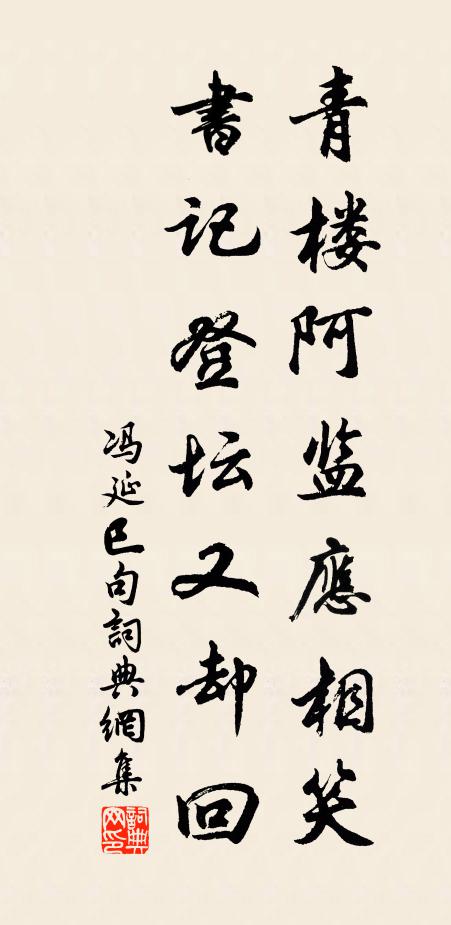 青楼阿监應相笑
書记登坛又却回
冯延巳句詞典網集
詞典網印